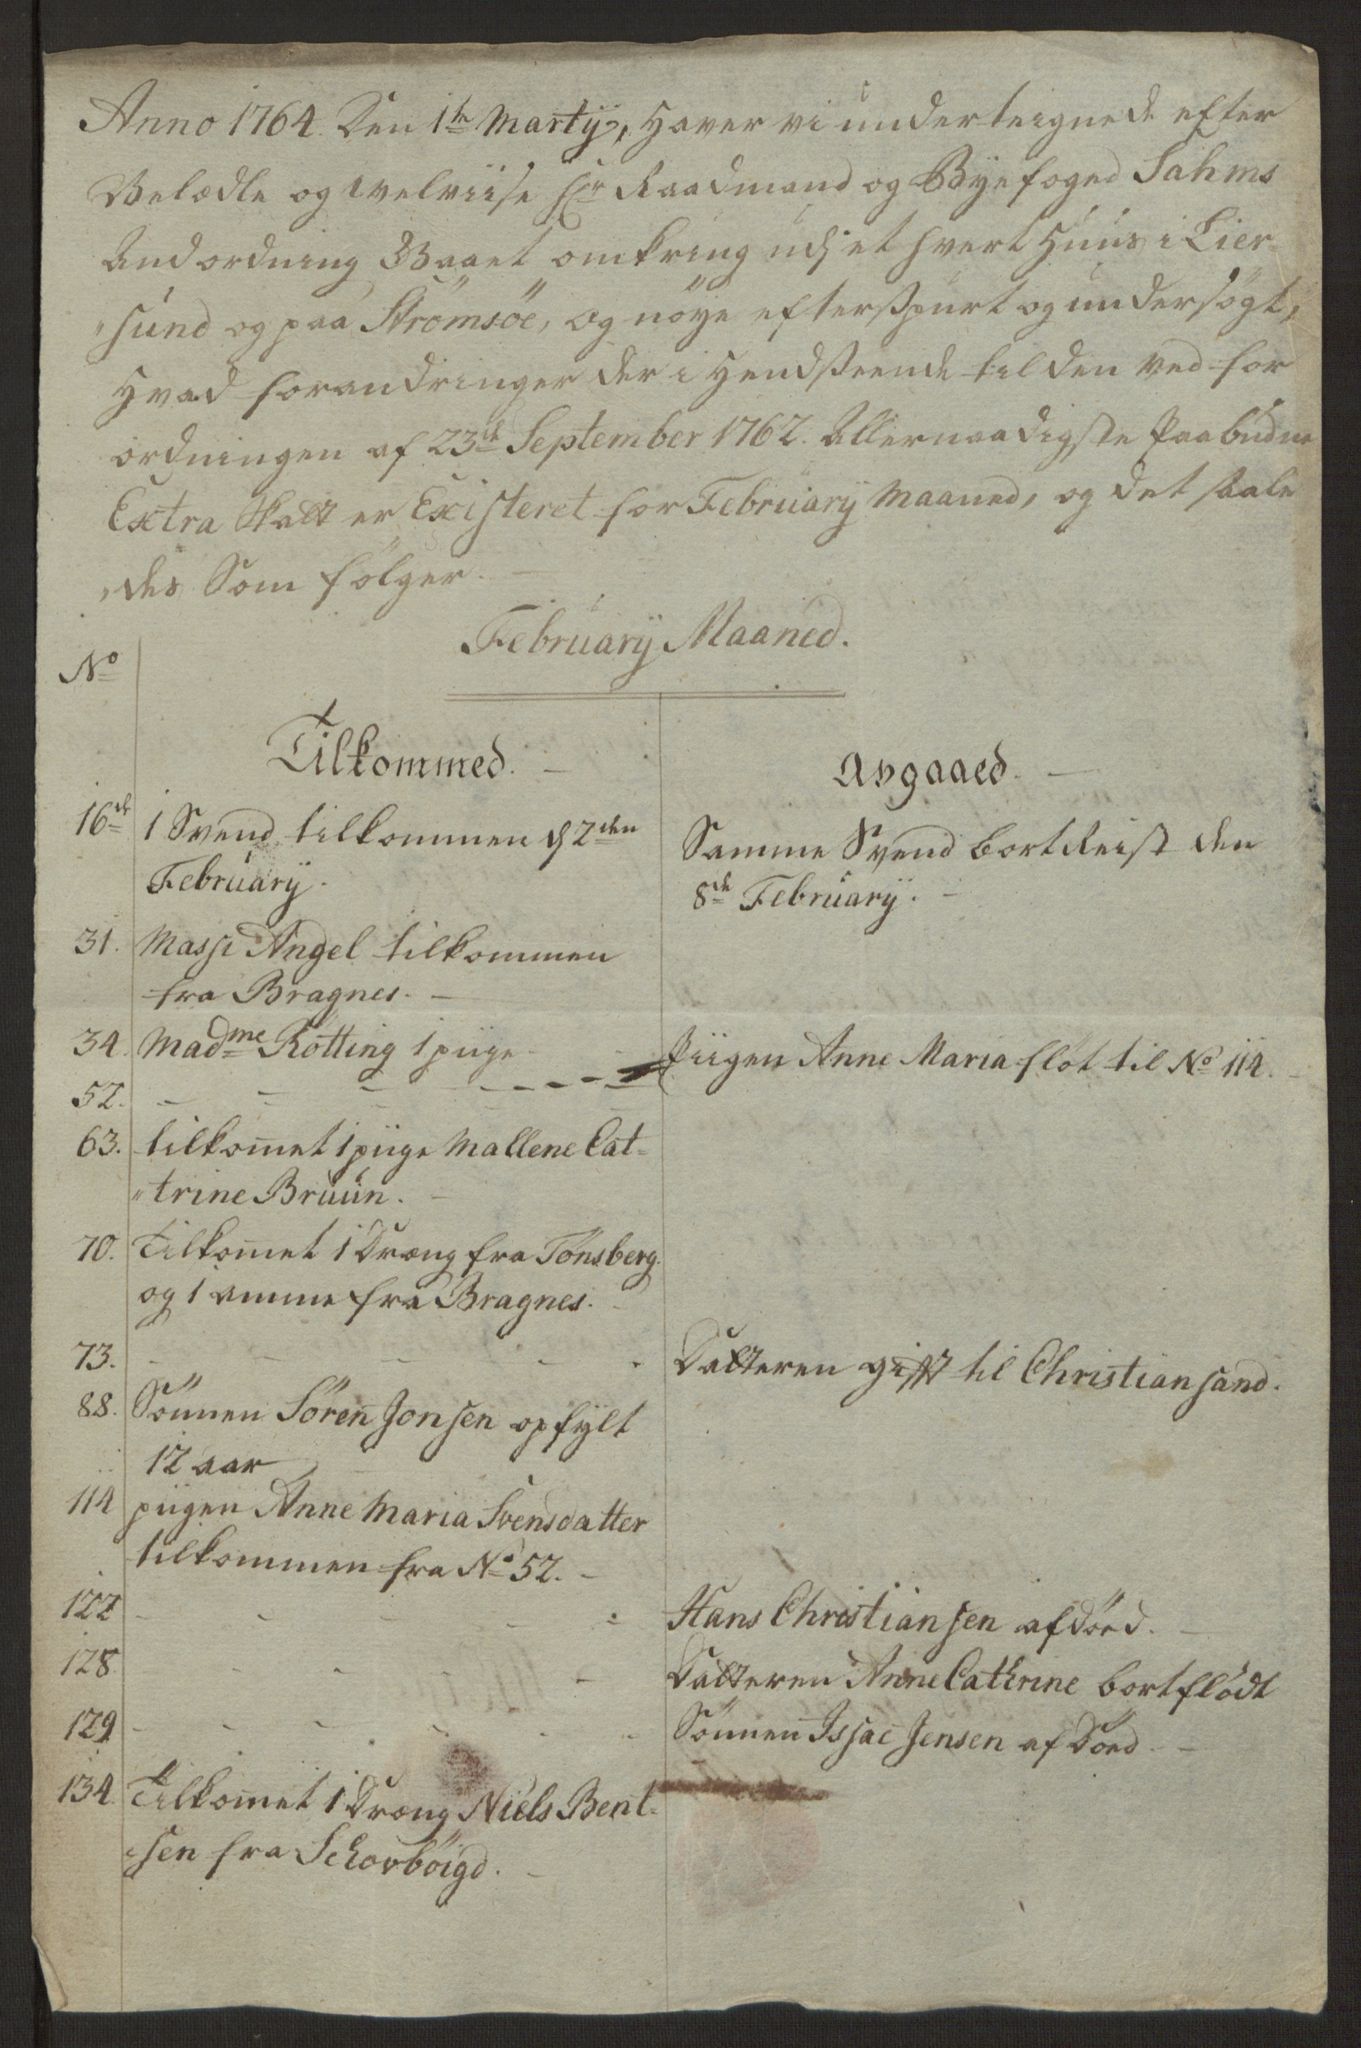 Anno 1764 Den 1te Martÿ, Haver vi underteignede efter
Velædle og Welviise Hr Raadmand og Byefoged Sahms
Andordning Gaaet omkring udj et hvert Huus i Lier-
"sund og paa Strömsöe, og nöye efterspurt og undersögt,
Hvad forandringer der i Hendseende til den ved for
ordningen af 23de September 1762. Allernaadigste Paabudne
Extra Skatt er Existeret for Februarÿ Maaned, og det saale
"des Som fölger.
Februarÿ Maaned.
No
Tilkommed. Avgaaed.
16de 1 Svend tilkommen d 2den Samme Svend bortReist den
Februarÿ. 8de Februarÿ.
31. Massi Angel tilkommen
fra Bragnes.
34. Madme Rötting 1 piige
52. Piigen Anne Maria flöt til No 114.
63. tilkomet 1 piige Mallene Cat-
"trine Bruun.
70. Tilkomet 1 Dreng fra Tönsberg
og 1 amme fra Bragnes.
73. Datteren gifft til Christiansand.
88. Sönnen Sören Jonsen opfylt
12 aar
114 piigen Anne Maria Svensdatter
tilkommen fra No 52.
122 Hans Christiansen afdöed.
128 Datteren Anne Cathrine bortflödt
129 Sönnen Issac Jensen afdöed
134. Tilkomet 1 Dreng Niels Bent-
sen fra Schovböigd.